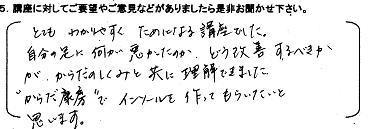 5. 講座に対してご要望やご意見などがありましたら是非お聞かせ下さい。
とても わかりやすく ためになる 講座でした。
自分の足に 何が 悪かったのか、どう改善 するべきか
が、からだのしくみと 共に 理解できました。
"からだ 康房"で インソールを 作って もらいたいと
思います。